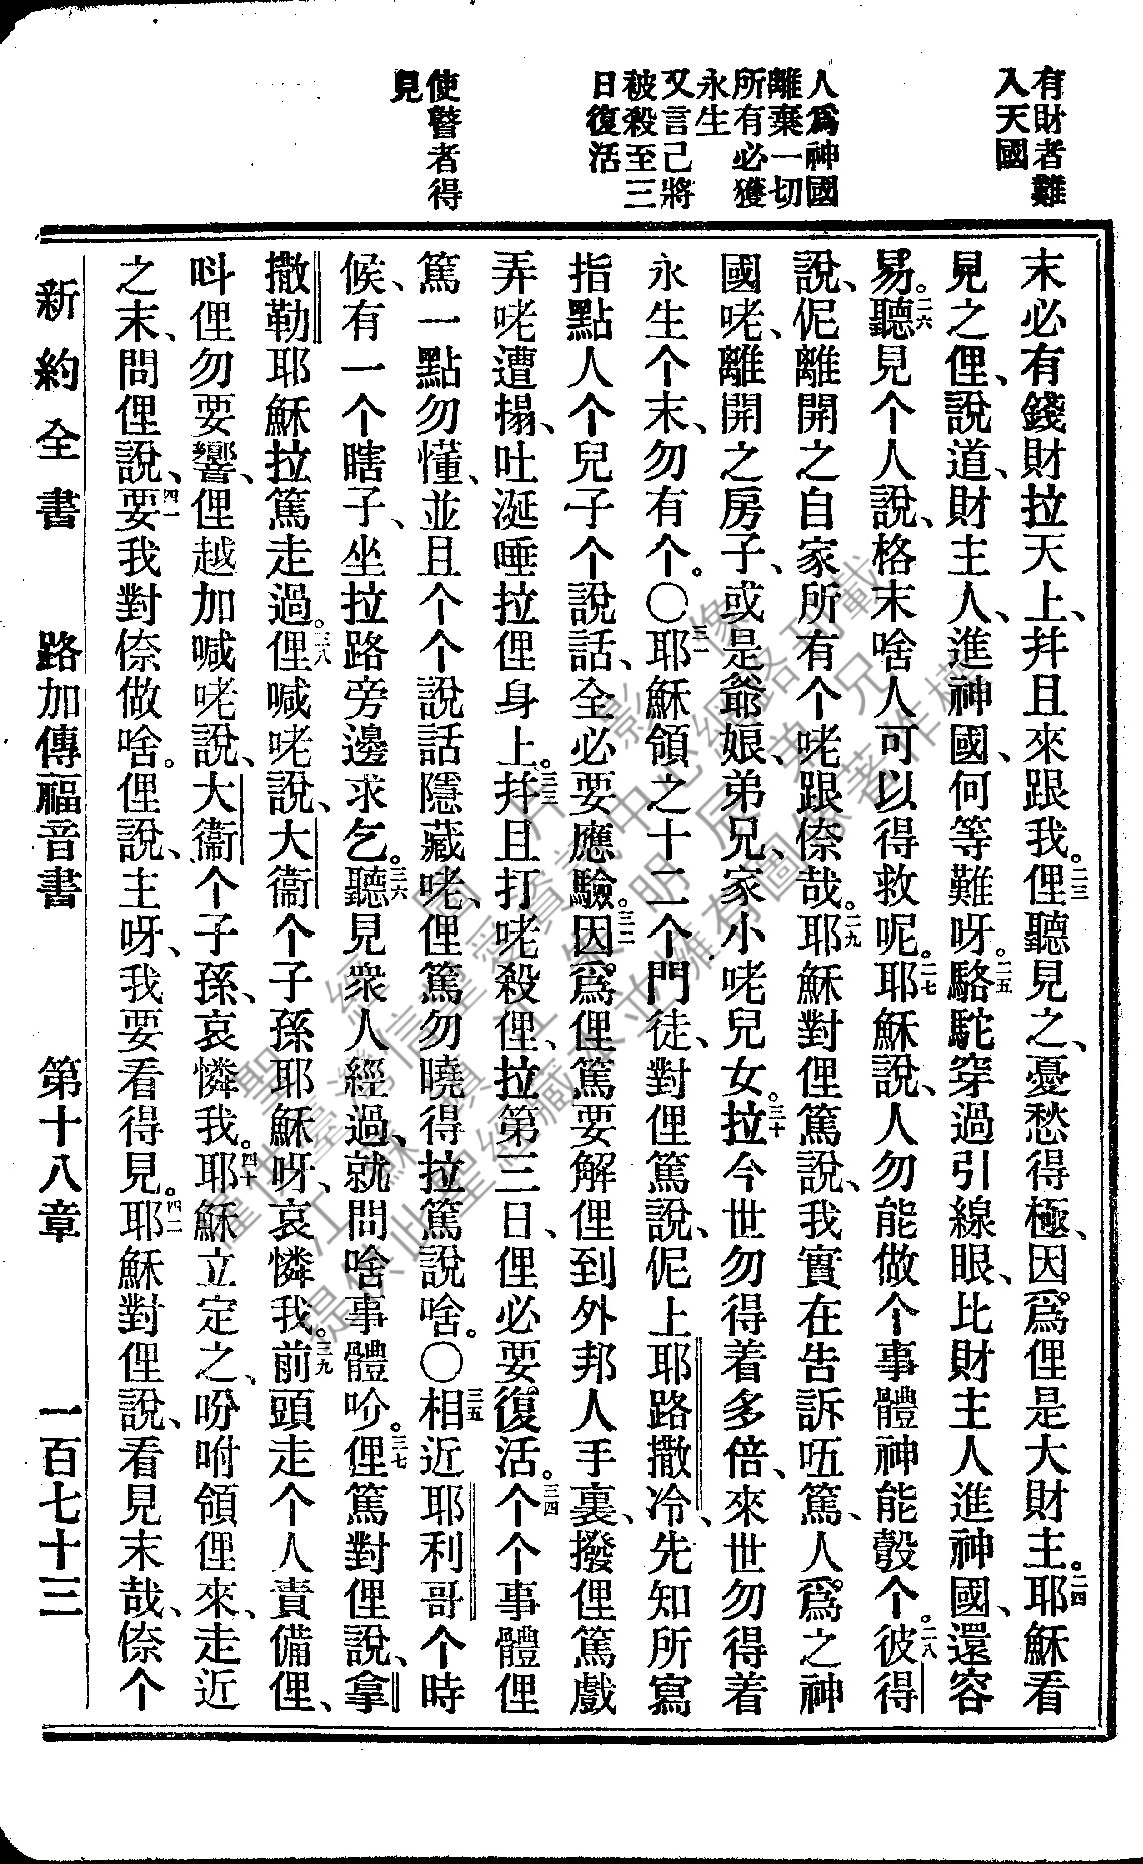 有財者難
入天國
人爲神國
離棄一切
所有必獲
永生
又言己將
被殺至三
日復活
使瞽者得
見
末必有錢財拉天上、幷且來跟我。二三俚聽見之、憂愁得極、因爲俚是大財主。二四耶穌看
見之俚、說道、財主人、進神國、何等難呀。二五駱駝穿過引線眼、比財主人進神國、還容
易。二六聽見个人說、格末啥人可以得救呢。二七耶穌說、人勿能做个事體神能彀个。二八彼得
說、伲離開之自家所有个咾跟倷哉。二九耶穌對俚篤說、我實在告訴唔篤、人爲之神
國咾、離開之房子、或是爺娘、弟兄、家小咾兒女。三十拉今世勿得着多倍、來世勿得着
永生个末、勿有个。〇三一耶穌領之十二个門徒、對俚篤說、伲上耶路撒冷、先知所寫
指點人个兒子个說話、全必要應驗。三二因爲俚篤要解俚到外邦人手裏、撥俚篤戲
弄咾遭搨、吐涎唾拉俚身上。三三幷且打咾殺俚、拉第三日、俚必要復活。三四个个事體俚
篤一點勿懂、並且个个說話隱藏咾、俚篤勿曉得拉篤說啥。〇三五相近耶利哥个時
候、有一个瞎子、坐拉路旁邊求乞。三六聽見衆人經過、就問啥事體吤。三七俚篤對俚說、拿
撒勒耶穌拉篤走過。三八俚喊咾說、大衞个子孫耶穌呀、哀憐我。三九前頭走个人責備俚、
呌俚勿要響、俚越加喊咾說、大衞个子孫、哀憐我。四十耶穌立定之、吩咐領俚來、走近
之末、問俚說、四一要我對倷做啥。俚說、主呀、我要看得見。四二耶穌對俚說、看見末哉、倷个
新約全書 路加傳福音書 第十八章 一百七十三